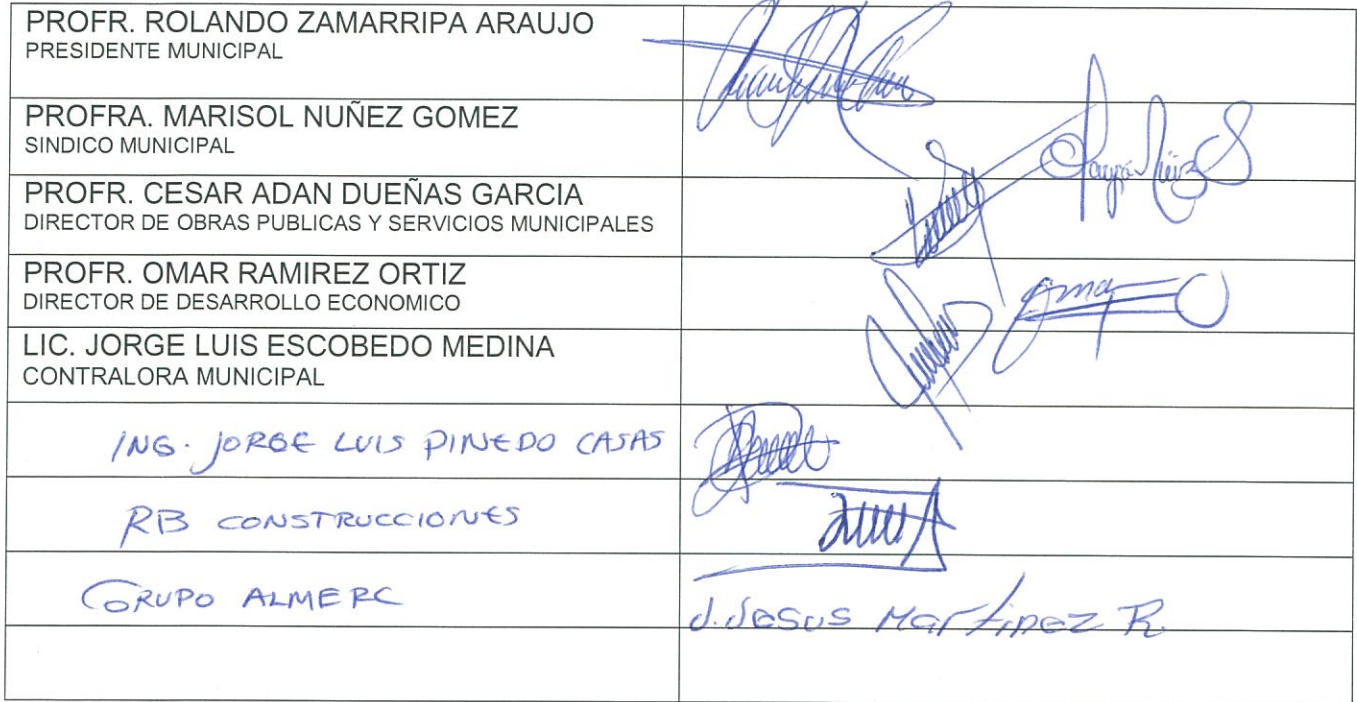 PROFR. ROLANDO ZAMARRIPA ARAUJO
PRESIDENTE MUNICIPAL
PROFRA. MARISOL NUÑEZ GOMEZ
SINDICO MUNICIPAL
PROFR. CESAR ADAN DUEÑAS GARCIA
DIRECTOR DE OBRAS PUBLICAS Y SERVICIOS MUNICIPALES
PROFR. OMAR RAMIREZ ORTIZ
DIRECTOR DE DESARROLLO ECONOMICO
LIC. JORGE LUIS ESCOBEDO MEDINA
CONTRALORA MUNICIPAL
ING. JORGE LUIS PINEDO CASAS
RB CONSTRUCCIONES
GRUPO ALMERC
J. Jesus Martinez R.